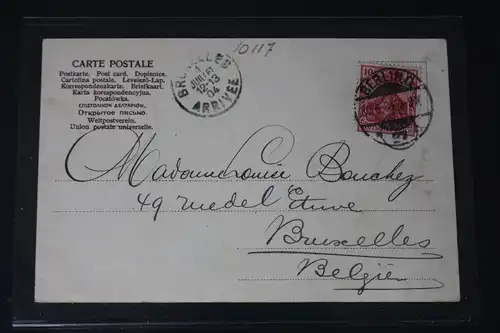 10117
CARTE POSTALE
Postkarte. Post card. Dopisnice.
Cartolina postale. Levelező-Lap.
Korrespondenzkarte. Briefkaart.
Karta korrespondencyjna.
Pocztówka.
ΕΠΙΣΤΟΛΙΚΟΝ ΔΕΛΤΑΡΙΟΝ.
Открытое письмо.
Weltpostverein.
Union postale universelle.
BRUXELLES
JUIN
12-13
04
ARRIVÉE
BERLIN
Madame Louise Bouchez
49 rue de l'Etuve
Bruxelles
Belgien